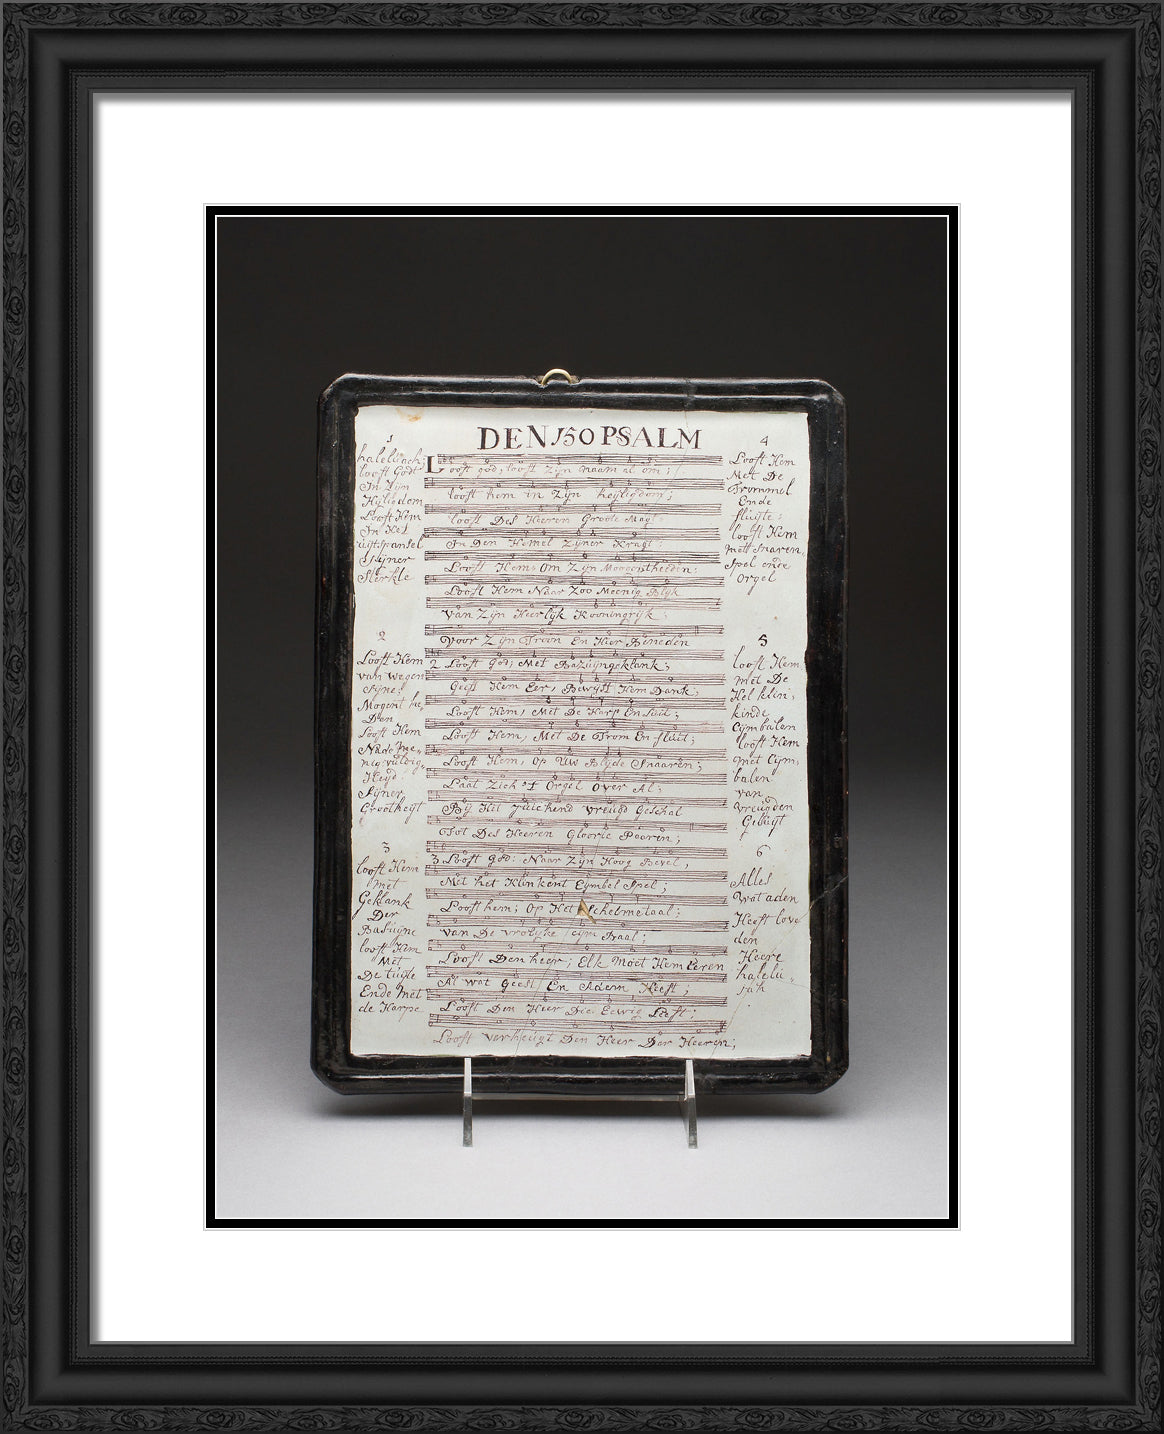 DEN 150 PSALM
1
halelu
looft Godt
In Zijn
Heyligdom
Looft Hem
In Het
uijtspansel
Zijner
Sterkte
2
Looft Hem
van wegen
sijne
Mogent he
Den
looft Hem
Nade me
nig vuldig
Heyd
Sijner
Grootheyt
3
looft Hem
met
Geklank
Der
Basuijne
looft Hem
Met
De luijte
Ende met
de Harpe
Looft god, looft Zijn naam al om;
looft hem in Zijn heyligdom;
looft Des Heeren Groote Magt
In Den Hemel Zijner Kragt;
Looft Hem, Om Zijn Moogentheeden:
Looft Hem Naar Zoo Menig Blijk
van Zijn Heerlijk Kooningrijk
Voor Zijn Troon En Hier Beneden
2 Looft God, Met Bazuijngeklank;
Geeft Hem Eer, Bewijst Hem Dank;
Looft Hem, Met De Harp En luit;
Looft Hem, Met De Trom En fluit;
Looft Hem, Op Uw Blijde Snaaren;
Laat Zich 't Orgel Over Al;
Bij Het Juichend vreugd Geschal
Tot Des Heeren Gloorie Paaren;
3 Looft God: Naar Zijn Hoog Bevel,
Met het Klinkent Cymbel Spel;
Looft hem; Op Het Schelmetaal;
van De vrolijke Cijmbaal;
Looft Den heer; Elk Moet Hem Eeren
Al wat Geest En Adem Heeft;
Looft Den Heer Die Eewig Leeft;
Looft verheugt Den Heer Der Heeren;
4
Looft Hem
Met De
Trommel
Ende
fluijte:
looft Hem
mett snaren,
spel ende
Orgel
5
looft Hem
met De
Hel klin
kinde
Cymbalen
looft Hem
met Cijm,
balen
van
Vreugden
Geluijt
6
Alles
Wat aden
Heeft love
den
Heere
halelu
jah